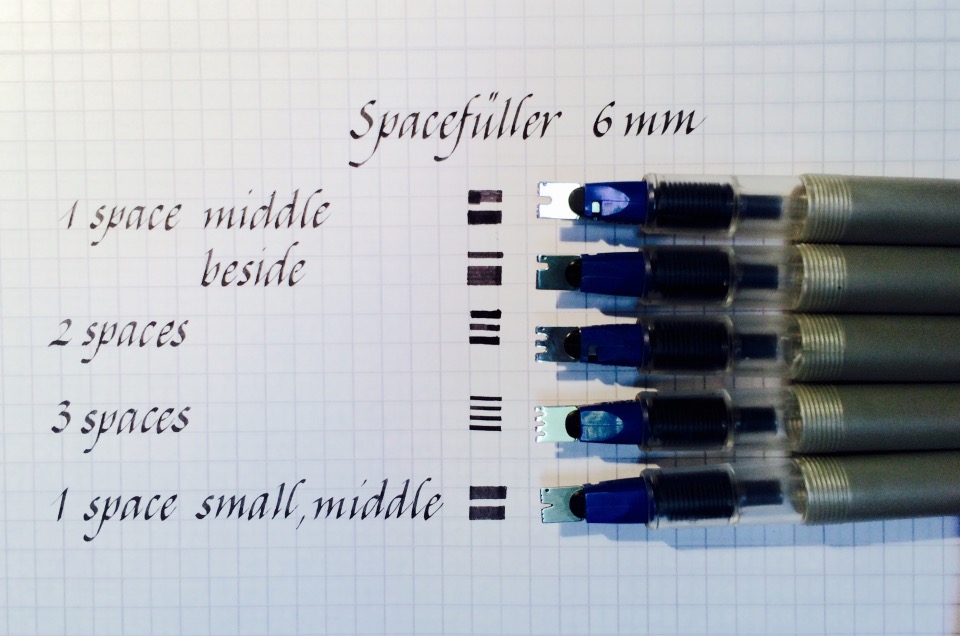 Spacefüller 6 mm
1 space middle
beside
2 spaces
3 spaces
1 space small, middle